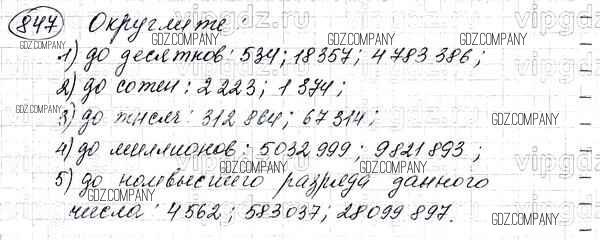 847 Округлите:
1) до десятков: 534; 18357; 4 783 386;
2) до сотен: 2 223; 1 374;
3) до тысяч: 312 864; 67 314;
4) до миллионов: 5032 999; 9821 893;
5) до наивысшего разряда данного
числа: 4 562; 583 037; 28 099 897.
GDZ.COMPANY
vipgdz.ru